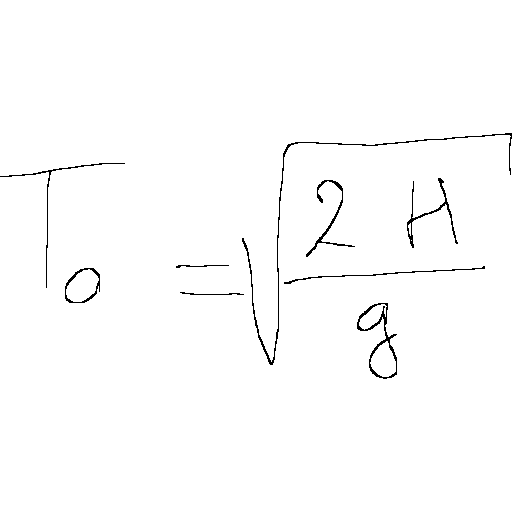 T_0 = \sqrt{\frac{2 H}{g}}